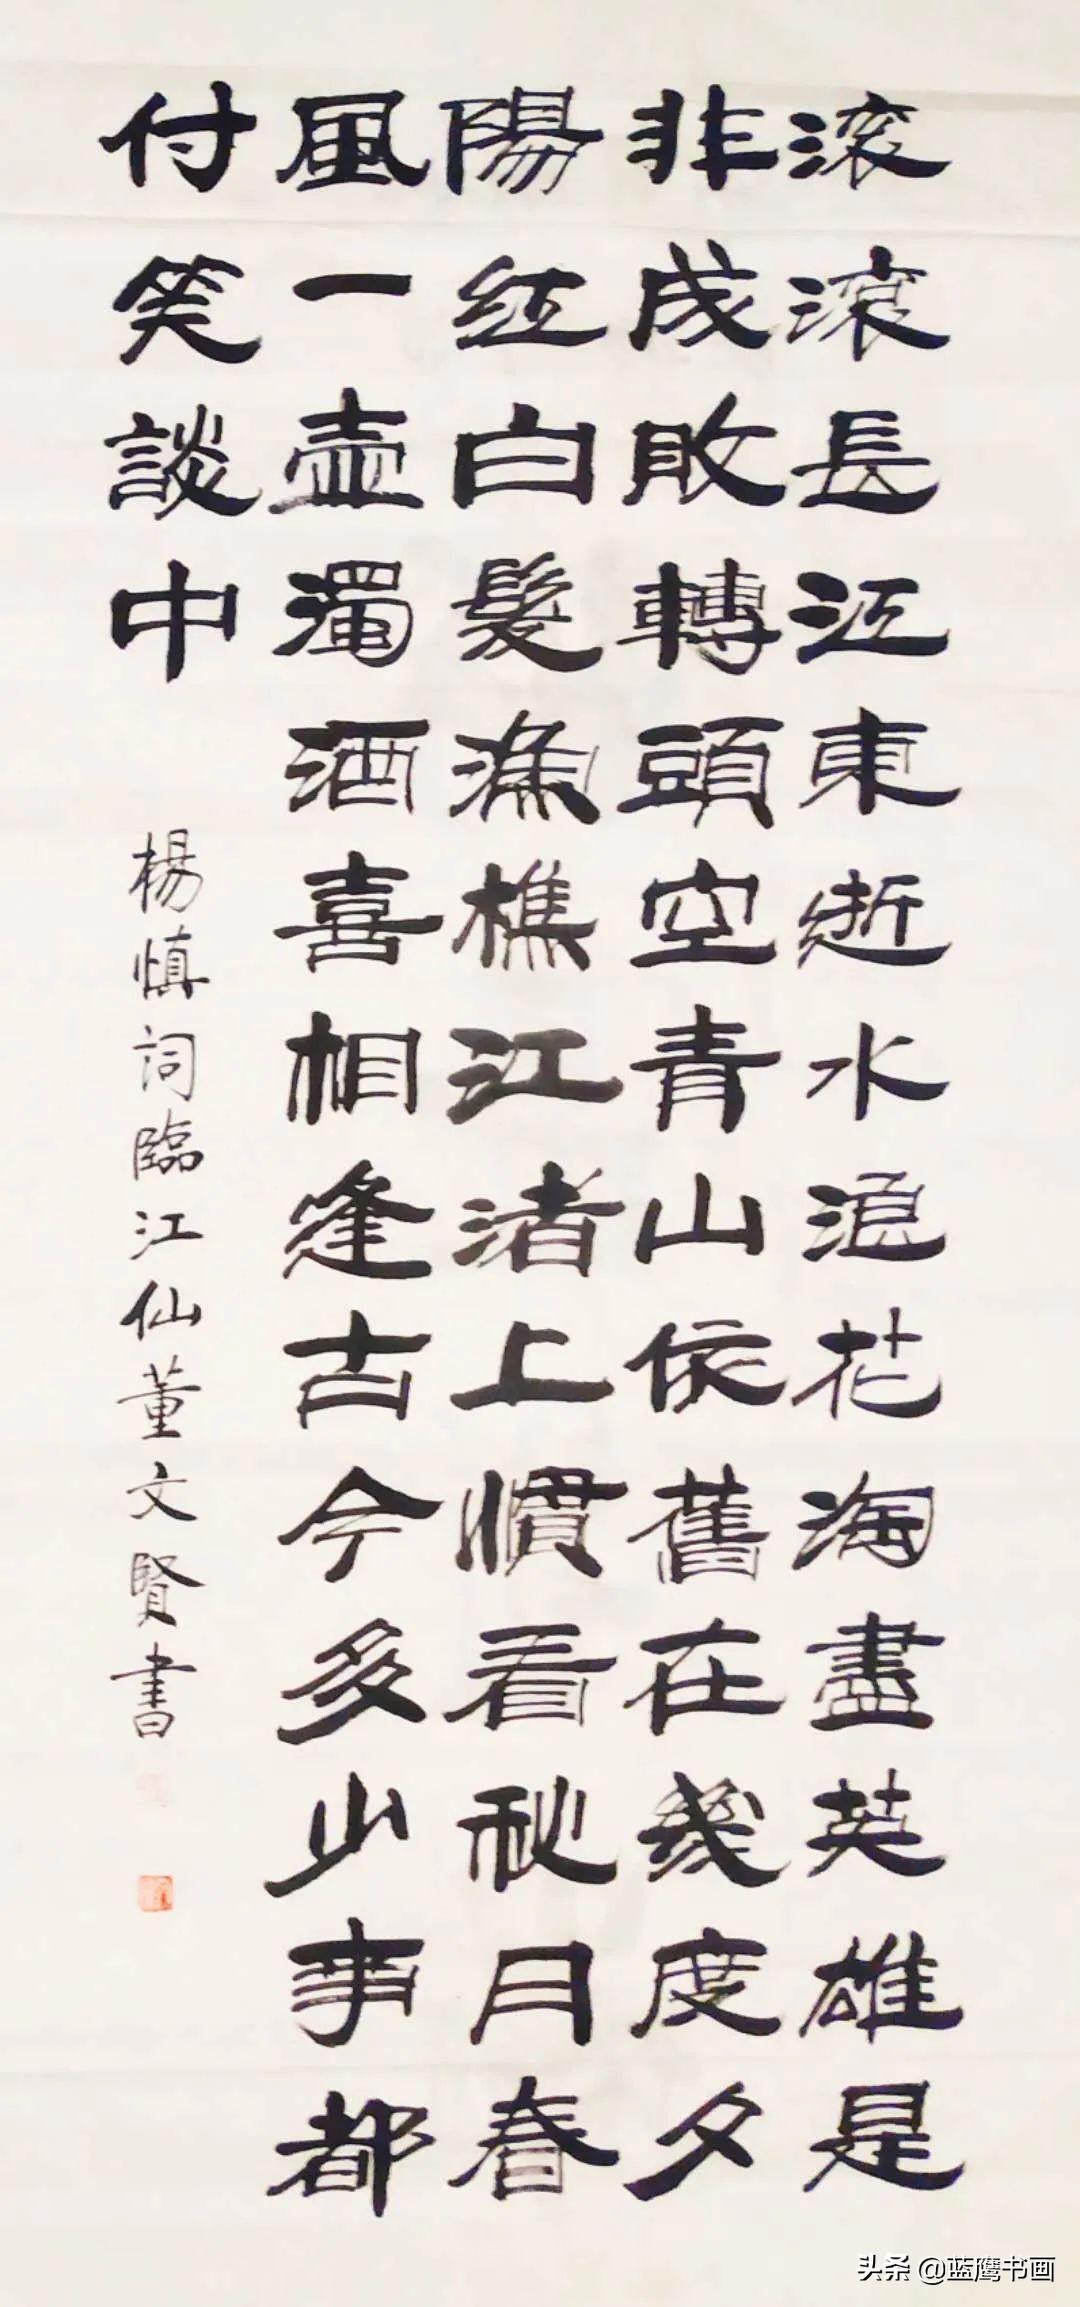 滚滚長江東逝水浪花淘盡英雄是
非成敗轉頭空青山依舊在幾度夕
陽紅白髮漁樵江渚上慣看秋月春
風一壺濁酒喜相逢古今多少事都
付笑談中
楊慎詞臨江仙董文賢書
头条 @蓝鹰书画